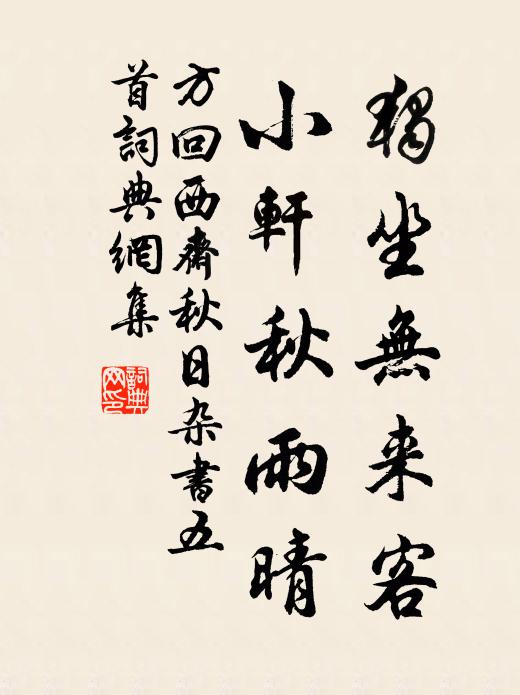 獨坐無来客
小軒秋雨晴
方回西齋秋日杂書五
首詞典網集
詞典
网印